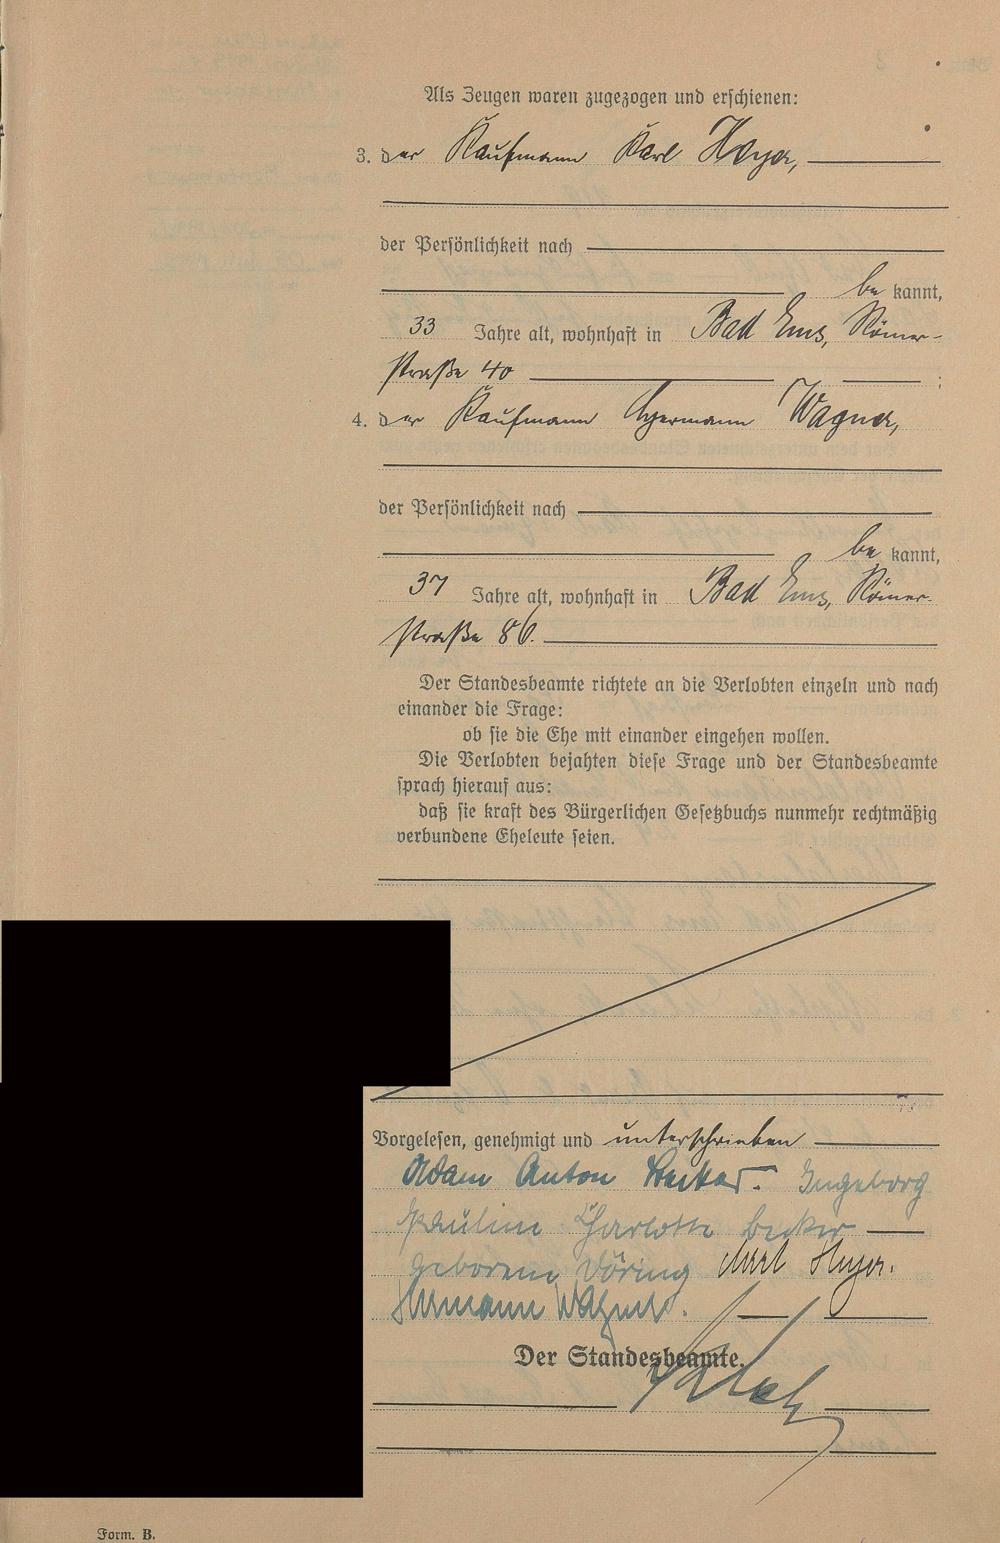 Als Zeugen waren zugezogen und erschienen:
3. der Kaufmann Karl Heyer,
der Persönlichkeit nach
be kannt,
33 Jahre alt, wohnhaft in Bad Ems, Römer-
straße 40 ;
4. der Kaufmann Hermann Wagner,
der Persönlichkeit nach
be kannt,
37 Jahre alt, wohnhaft in Bad Ems, Römer-
straße 86.
Der Standesbeamte richtete an die Verlobten einzeln und nach
einander die Frage:
ob sie die Ehe mit einander eingehen wollen.
Die Verlobten bejahten diese Frage und der Standesbeamte
sprach hierauf aus:
daß sie kraft des Bürgerlichen Gesetzbuchs nunmehr rechtmäßig
verbundene Eheleute seien.
Vorgelesen, genehmigt und unterschrieben
Adam Anton Becker. Ingeborg
Pauline Charlotte Becker
geborene Döring Karl Heyer.
Hermann Wagner.
Der Standesbeamte.
Form. B.